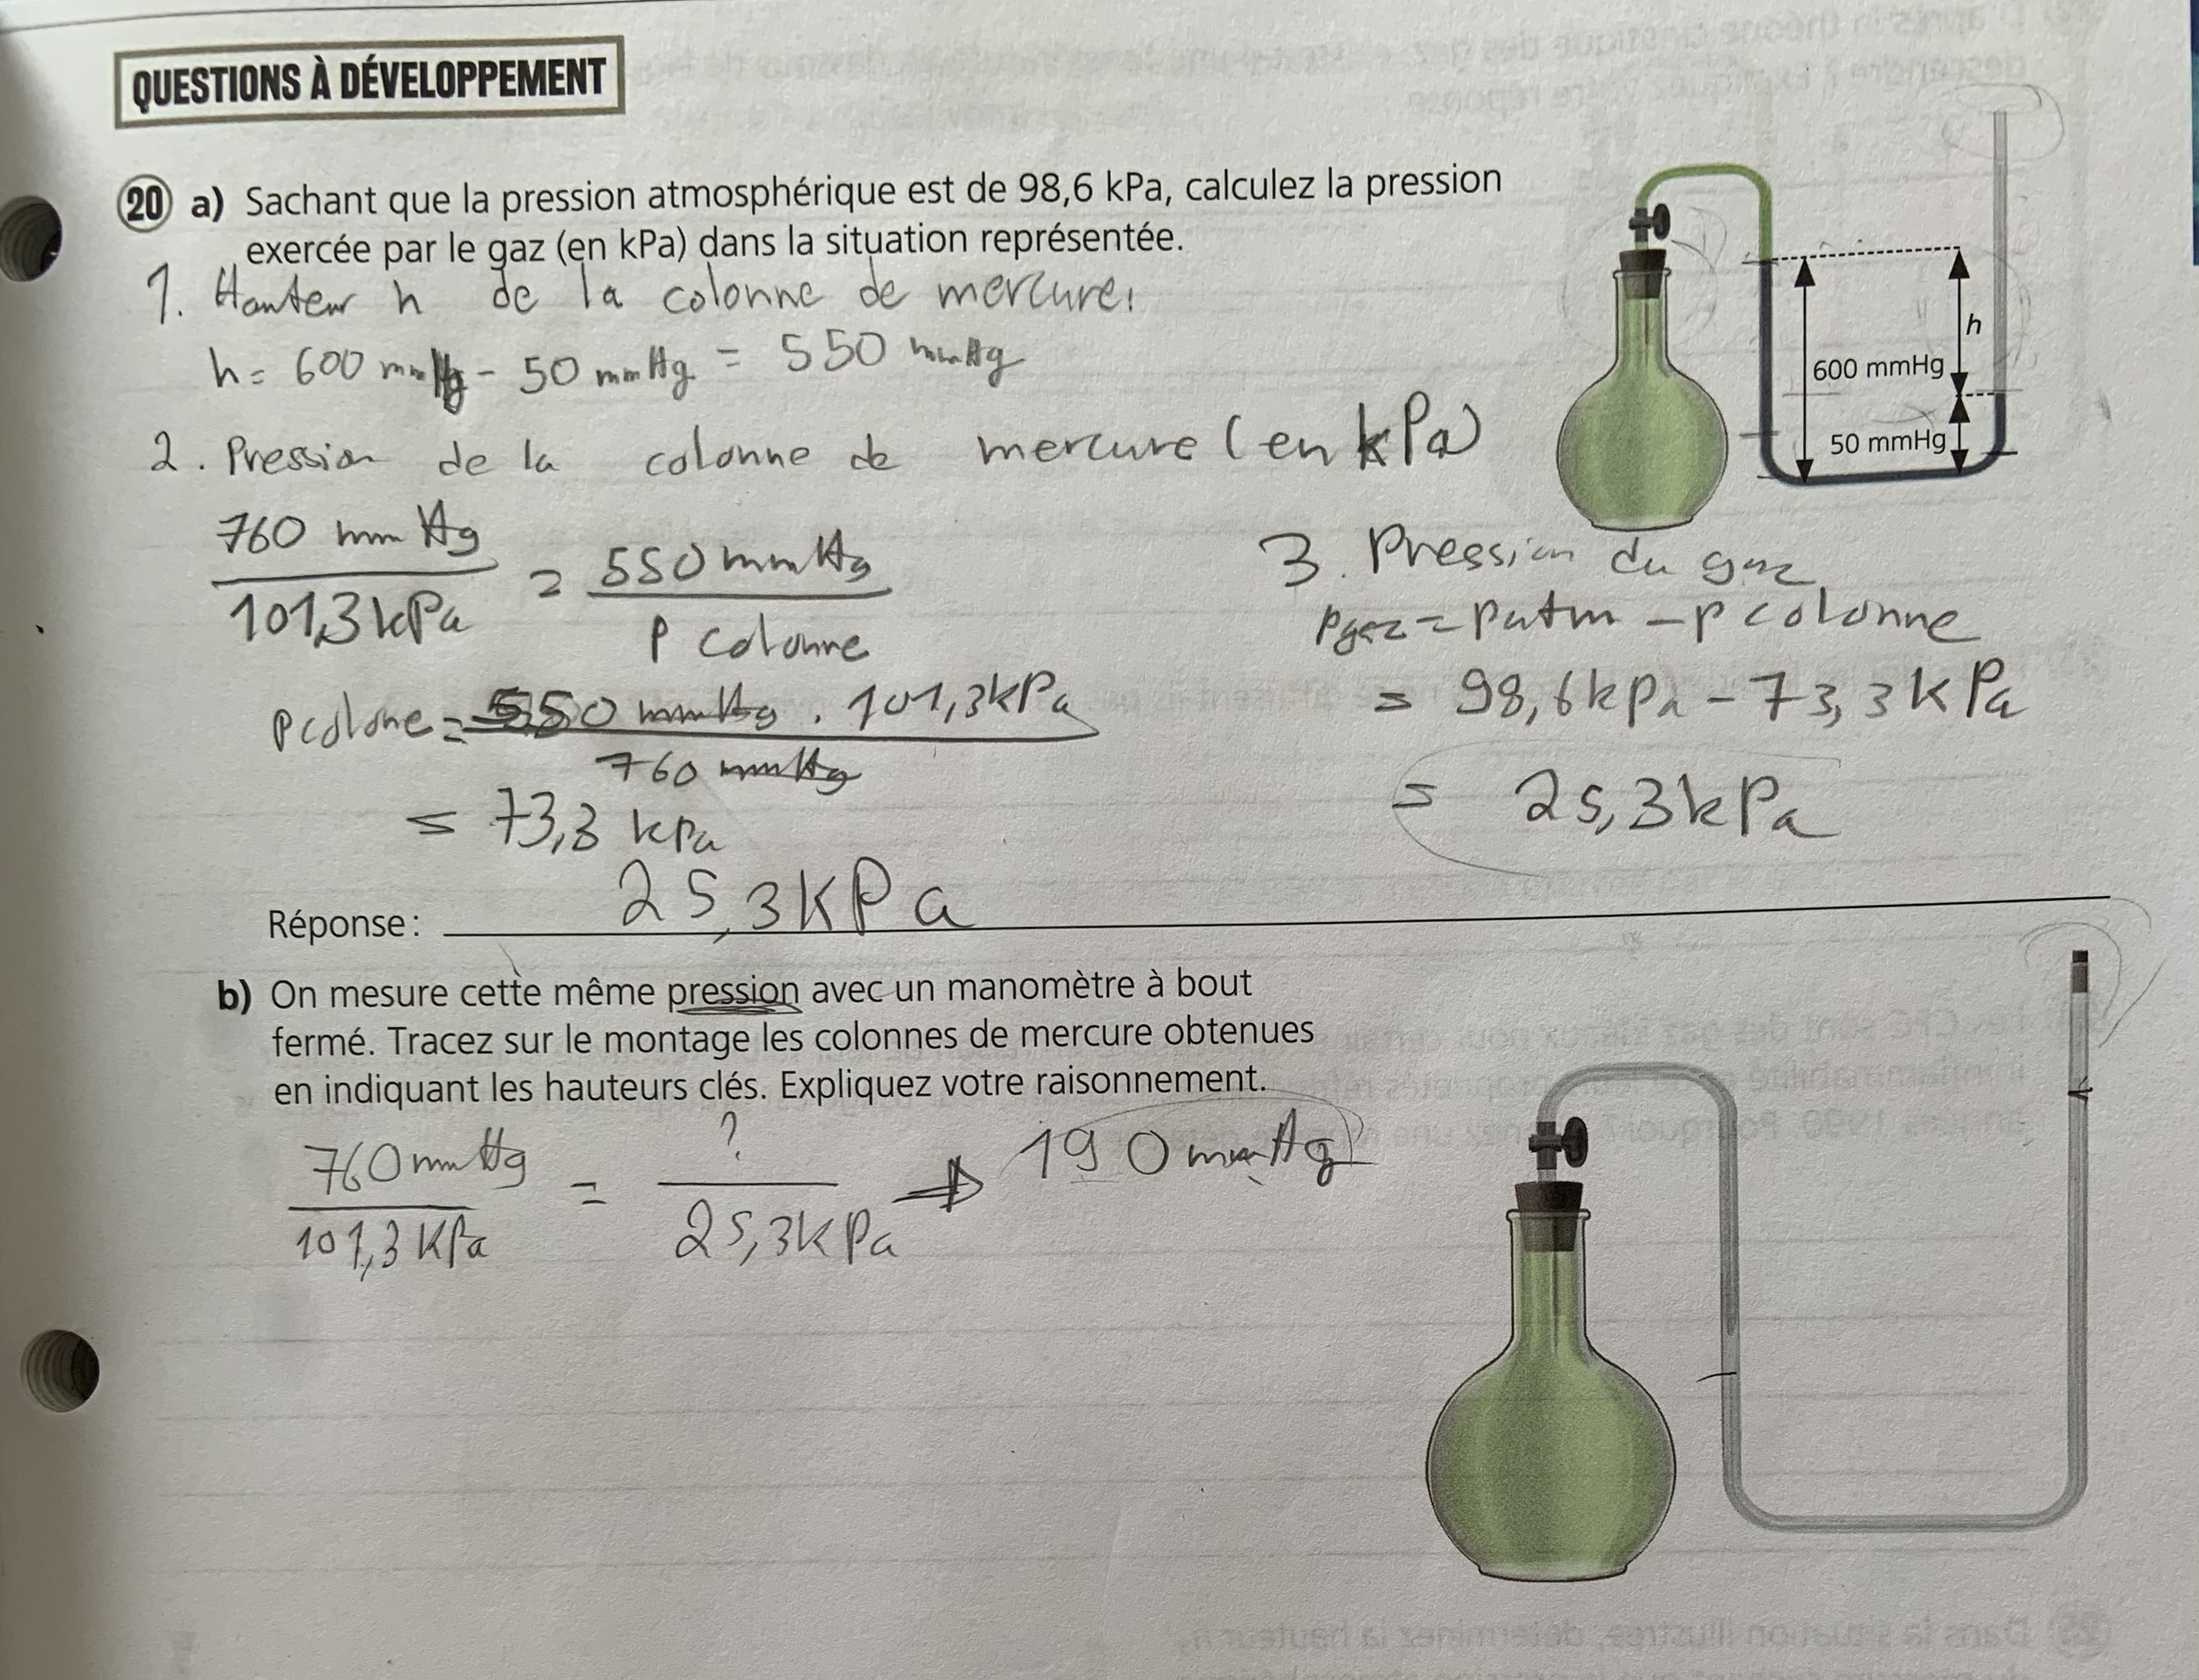 QUESTIONS À DÉVELOPPEMENT
20 a) Sachant que la pression atmosphérique est de 98,6 kPa, calculez la pression
exercée par le gaz (en kPa) dans la situation représentée.
1. Hauteur h de la colonne de mercure:
h = 600 mmHg - 50 mmHg = 550 mmHg
h
600 mmHg
50 mmHg
2. Pression de la colonne de mercure (en kPa)
760 mm Hg
101,3 kPa
= 550 mmHg
P colonne
pcolone = 550 mmHg . 101,3kPa
760 mmHg
= 73,3 kPa
3. Pression du gaz
Pgaz = Patm - P colonne
= 98,6kPa - 73,3 kPa
= 25,3kPa
Réponse : 25,3KPa
b) On mesure cette même pression avec un manomètre à bout
fermé. Tracez sur le montage les colonnes de mercure obtenues
en indiquant les hauteurs clés. Expliquez votre raisonnement.
760mmHg
101,3 KPa
= ?
25,3kPa
⇒ 190mmHg